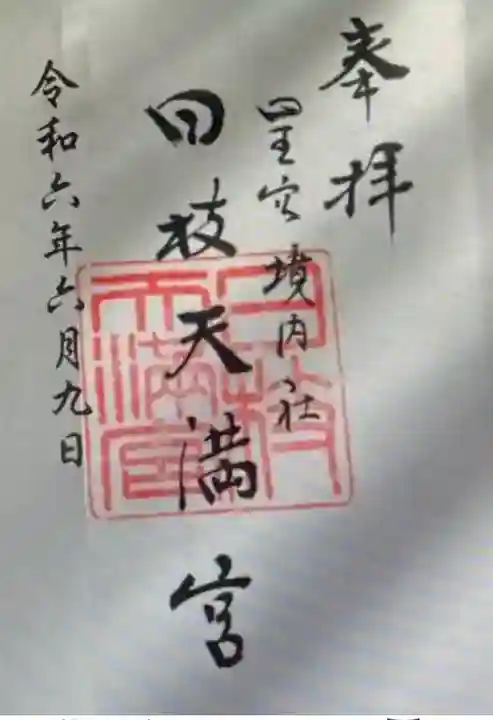 奉拝
境内社
日枝天満宮
令和六年六月九日
日枝
天満宮